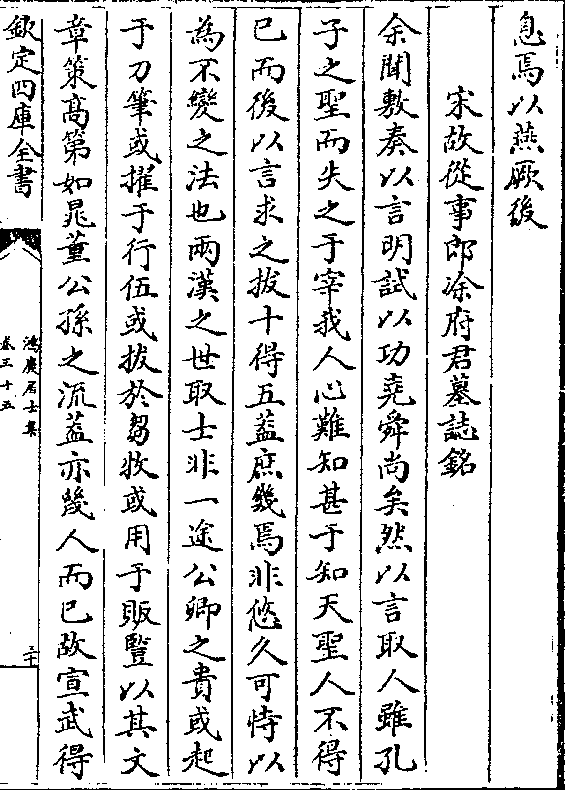 息焉以燕厥後
宋故從事郎涂府君墓誌銘
余聞敷奏以言明試以功堯舜尚矣然以言取人雖孔
子之聖而失之于宰我人心難知甚于知天聖人不得
已而後以言求之拔十得五蓋庶幾焉非悠久可恃以
為不變之法也兩漢之世取士非一途公卿之貴或起
于刀筆或擢于行伍或拔於芻牧或用于販豎以其文
章策髙第如鼂董公孫之流蓋亦幾人而已故宣武得
欽定四庫全書
鴻慶居士集
卷三十五
二十